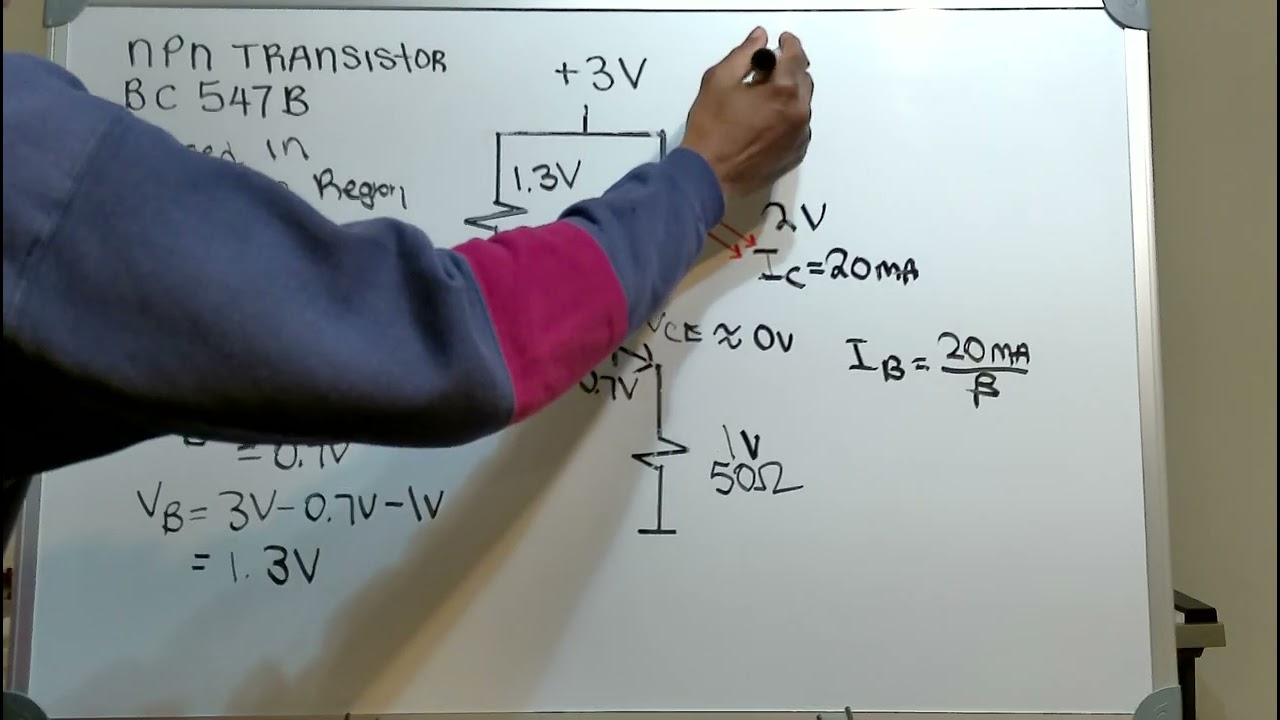 nPn TRANSISTOR
BC 547B
in
Region
+3V
1.3V
2V
IC=20mA
VCE≈0V
0.7V
IB=20mA/β
1V
50Ω
=0.7V
VB=3V-0.7V-1V
=1.3V